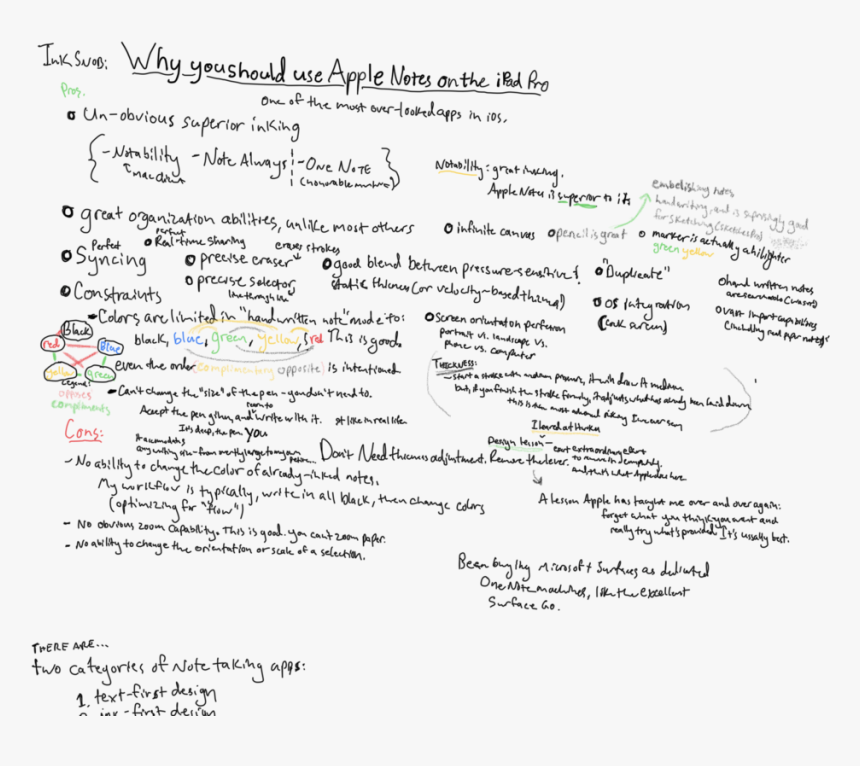 InkSnob: Why you should use Apple Notes on the iPad Pro
Pros.
one of the most over-looked apps in iOS.
Un-obvious superior inking
- Notability - Note Always - One Note
(honorable mention)
Notability: great inking.
Apple Notes is superior to it
embellishing notes
handwriting, and is surprisingly good
for sketching
great organization abilities, unlike most others
infinite canvas
pencil is great
marker is actually a highlighter
green yellow
perfect
Real-time sharing
Perfect
Syncing
erases strokes
precise eraser
precise selector
good blend between pressure-sensitive &
static thickness (or velocity-based thinning)
"Duplicate"
OS integration
hand written notes
are searchable
vast import capabilities
(including real paper notes)
Constraints
- Colors are limited in "handwritten note" mode to:
black, blue, green, yellow, & red This is good
even the order (complimentary opposite) is intentioned
black
red
Blue
yellow
green
Legend:
opposites
compliments
screen orientation perfection
portrait vs. landscape vs.
phone vs. computer
Thickness:
- start a stroke with medium pressure, it will draw it medium
but, if you finish the stroke
this is the most
- Can't change the "size" of the pen - you don't need to.
Accept the pen given, and learn to write with it. just like in real life
It's deep, the pen YOU
Cons:
Don't Need thickness adjustment. Remove the lever.
Design lesson - exert extraordinary effort
and that's what Apple does here
- No ability to change the color of already-inked notes.
My workflow is typically, write in all black, then change colors
(optimizing for "flow")
A lesson Apple has taught me over and over again:
forget what you think you want and
really try what's provided. It's usually best.
- No obvious zoom capability. This is good. you can't zoom paper.
- No ability to change the orientation or scale of a selection.
Been buying Microsoft Surfaces as dedicated
One Note machines, like the excellent
Surface Go.
There are...
two categories of note taking apps:
1. text-first design
2. ink-first design